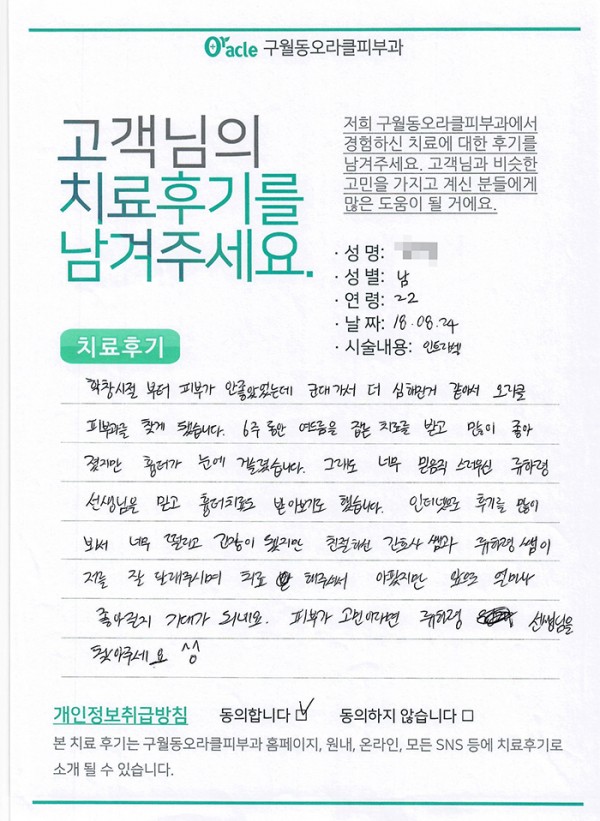 Oracle 구월동오라클피부과
고객님의
치료후기를
남겨주세요.
저희 구월동오라클피부과에서
경험하신 치료에 대한 후기를
남겨주세요. 고객님과 비슷한
고민을 가지고 계신 분들에게
많은 도움이 될 거에요.
· 성 명:
· 성 별: 남
· 연 령: 22
· 날 짜: 18.08.24
· 시술내용: 인트라셀
치료후기
학창시절 부터 피부가 안좋았었는데 군대가서 더 심해진거 같아서 오라클
피부과를 찾게 됐습니다. 6주 동안 여드름을 잡는 치료를 받고 많이 좋아
졌지만 흉터가 눈에 거슬렸습니다. 그래도 너무 믿음직 스러우신 류하영
선생님을 믿고 흉터치료도 받아보기로 했습니다. 인터넷으로 후기를 많이
봐서 너무 떨리고 긴장이 됐지만 친절하신 간호사 쌤과 류하영 쌤이
저를 잘 달래주시며 치료 해주셔서 아팠지만 앞으로 얼마나
좋아질지 기대가 되네요. 피부가 고민이라면 류하영 선생님을
찾아주세요 ^^
개인정보취급방침 동의합니다 ☑ 동의하지 않습니다 □
본 치료 후기는 구월동오라클피부과 홈페이지, 원내, 온라인, 모든 SNS 등에 치료후기로
소개 될 수 있습니다.